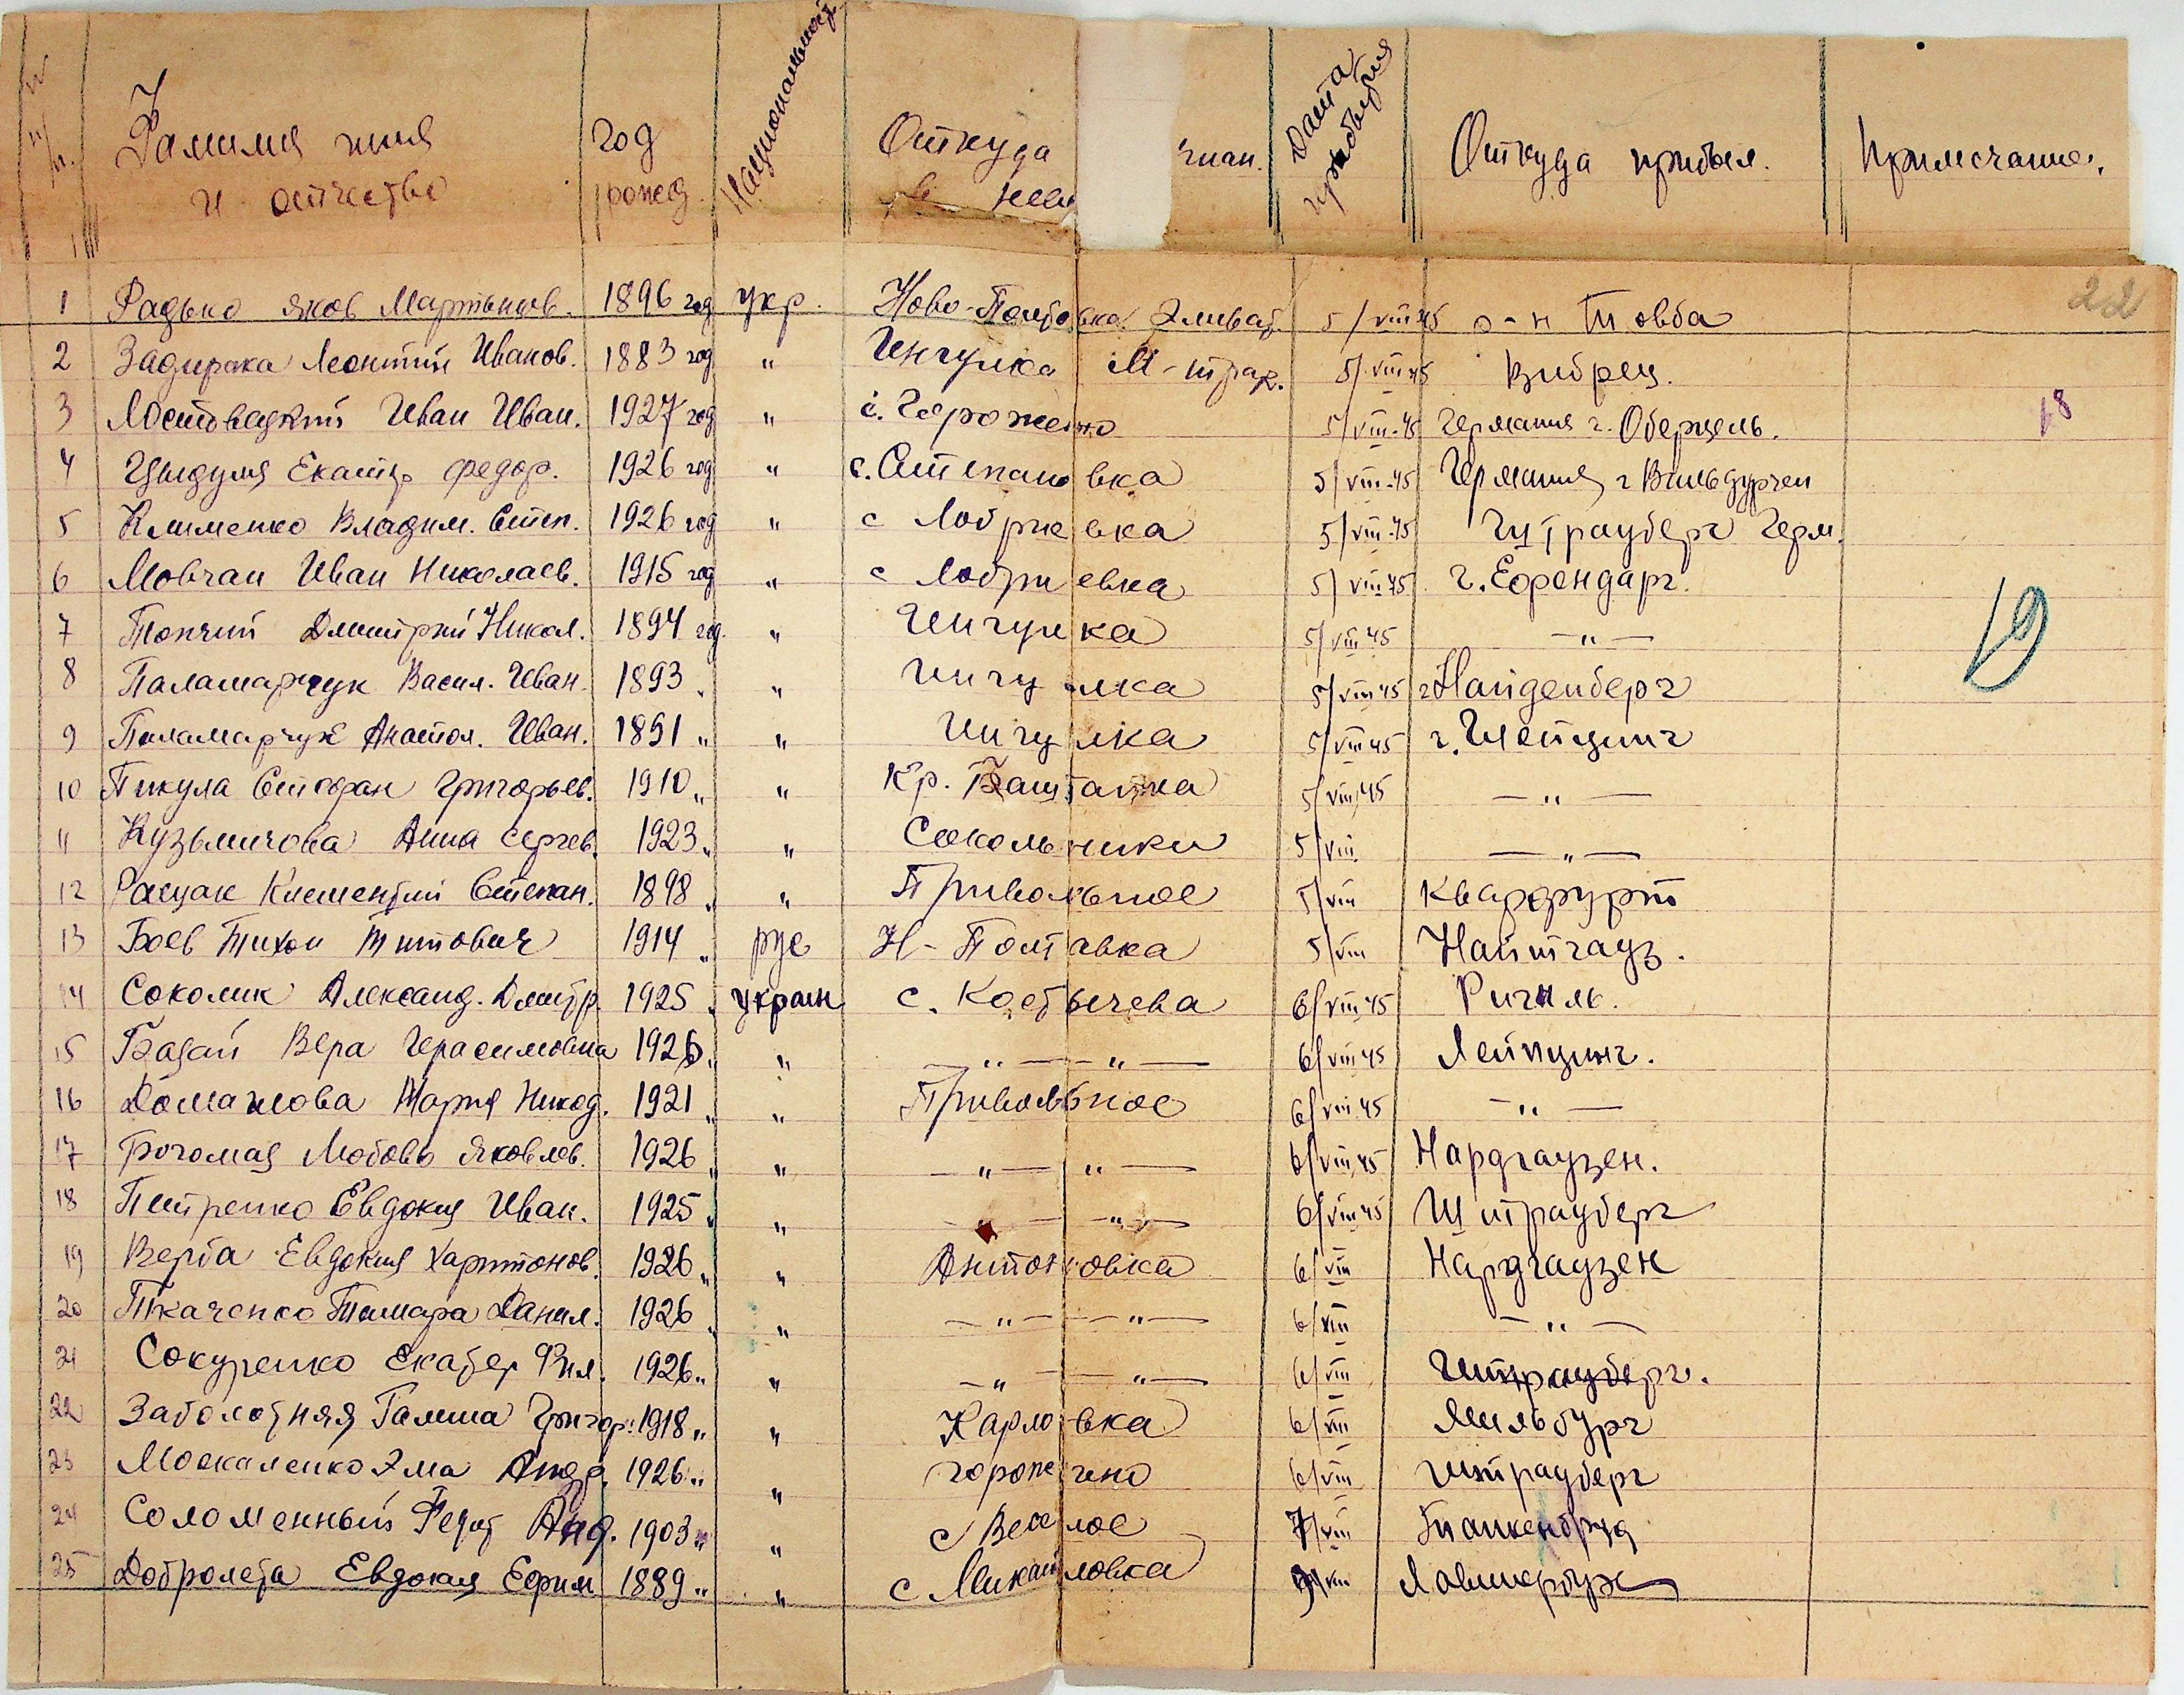 N п/п. Фамилия имя и отчество год рожд. Национальность Откуда чнан. Дата прибытия Откуда прибыл. Примечание.
22
1 Радько Яков Мартынов. 1896 год укр. Ново-Полтовка 5/VIII 45
2 Задирака Леонтий Иванов. 1883 год " Ингулка 5/VIII 45
3 Иван Иван. 1927 год " с. Горожено 5/VIII-45 Германия г. Оберцель.
18
4 Цыдуля Екатер Федор. 1926 год " с. Степановка 5/VIII-45 Германия г
5 Клименко Владим. Степ. 1926 год " с Лобриевка 5/VIII-45 Герм.
6 Мовчан Иван Николаев. 1915 год " с Лобриевка 5/VIII 45 г. Ефендарг.
19
7 Топчий Дмитрий Никол. 1894 год. " Ингулка 5/VIII 45 — " —
8 Паламарчук Васил. Иван. 1893 " " Ингулка 5/VIII 45 г Найденберг
9 Паламарчук Анатол. Иван. 1891 " " Ингулка 5/VIII 45 г.
10 Пикула Стефан Григорьев. 1910 " " Кр. Баштанка 5/VIII 45 — " —
11 Кузьмичова Анна Сергев. 1923 " " Сокольники 5/VIII — " —
12 Клементий Степан. 1898 " " Привольное 5/VIII Кварфурт
13 Боев Тихон Титович 1914 " рус Н-Полтавка 5/VIII Найтгауз.
14 Соколик Александ. Дмитр. 1925 " украин с. Костычева 6/VIII 45
15 Бадай Вера Герасимовна 1926 " " — " — " — 6/VIII 45 Лейпциг.
16 Мария Никод. 1921 " " Привольное 6/VIII 45 — " —
17 Любовь Яковлев. 1926 " " — " — " — 6/VIII 45 Нардгаузен.
18 Питренко Евдокия Иван. 1925 " " — " — " — 6/VIII 45 Штрауберг
19 Верба Евдокия Харитонов. 1926 " " Антоновка 6/VIII Нардгаузен
20 Ткаченко Тамара Данил. 1926 " " — " — " — 6/VIII — " —
21 Сокуренко Екатер Фил. 1926 " " — " — " — 6/VIII Штрауберг.
22 Заболотняя Галина Григор. 1918 " " Карловка 6/VIII Мильбург
23 Москаленко Эма Андр. 1926 " " горожено 6/VIII Штрауберг
24 Соломенный Федот Анд. 1903 " " с Веселое 7/VIII
25 Добролета Евдокия Ефим 1889 " " с Михайловка